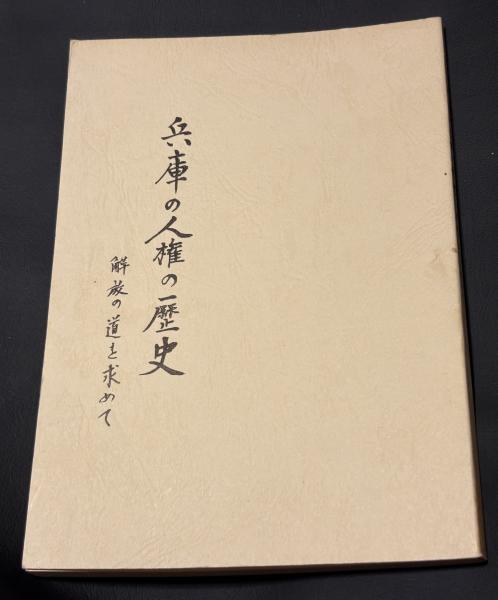 兵庫の人権の歴史
解放の道を求めて